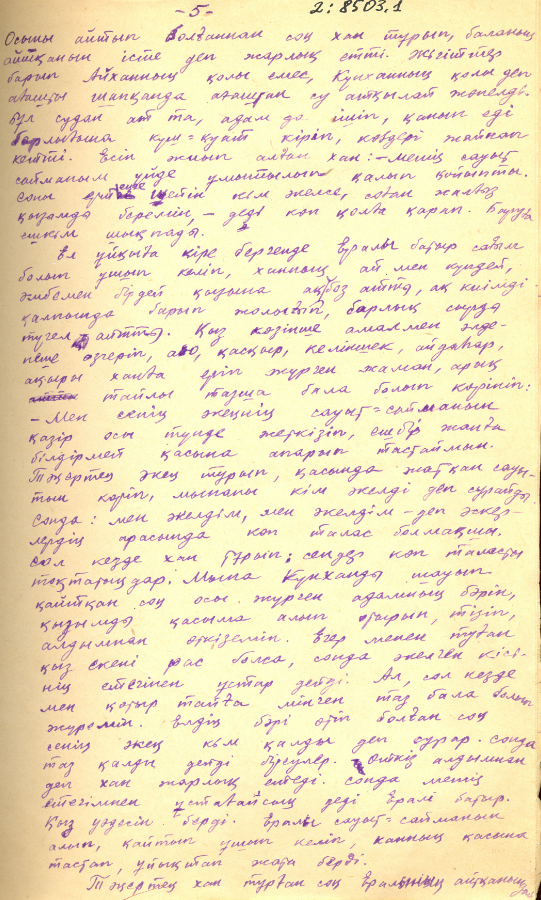 - 5 -
2:8503.1
Осыны айтып болғаннан соң хан тұрып, баланың
айтқанын істе деп жарлық етті. Жігіттер
барып Айханның қолы емес, Күнханның қолы деп
ағашты шапқанда ағаштан су атқылап жөнелді.
Бұл судан ат та, адам да ішіп, қанып еді
барлығына күш=қуат кіріп, көздері жайнап
кетті. Есін жиып алған хан: - Менің сауыт
сайманым үйде ұмытылып қалып қойыпты.
Соны ертеңге шейін кім әкелсе, соған жалғыз
қызымды беремін, - деді көп қолға қарап. Баруға
ешкім шықпады.
Ел ұйқыға кіре бергенде Ералы батыр сағым
болып ұшып келіп, ханның ай мен күндей,
жібекпен бірдей қызына ақбоз атта, ақ киімді
қалпында барып жолығып, барлық сырды
түгел айтты. Қыз көзінше амалмен әлде-
неше өзгеріп, аю, қасқыр, келіншек, айдаһар,
ақыры ханға еріп жүрген жаман, арық
тайлы тазша бала болып көрініп:
- Мен сенің әкеңнің сауыт=сайманын
қазір осы түнде жеткізіп, ешбір жанға
білдірмей қасына апарып тастаймын.
Таңертең әкең тұрып, қасында жатқан сауы-
тын көріп, мынаны кім әкелді деп сұрайды.
Сонда: мен әкелдім, мен әкелдім - деп әскер-
лердің арасында көп талас болмақшы.
Сол кезде хан тұрып: сендер көп таласты
тоқтатыңдар. Мына Күнханды шауып
қайтқан соң осы жүрген адамның бәрін,
қызымды қасыма алып отырып, тізіп,
алдымнан өткіземін. Егер менен туған
қыз екені рас болса, сонда әкелген кісі-
нің етегінен ұстар дейді. Ал, сол кезде
мен қотыр тайға мінген таз бала болып
жүремін. Елдің бәрі өтіп болған соң
сенің әкең кім қалды деп сұрар. Сонда
таз қалды дейді біреулер. Өткіз алдымнан
деп хан жарлық етеді. Сонда менің
етегімнен ұстағайсың деді Ералі батыр.
Қыз уәдесін берді. Ералы сауыт=сайманын
алып, қайтып ұшып келіп, ханның қасына
тастап, ұйықтап жата берді.
Таңертең хан тұрған соң Ералының айтқанындай